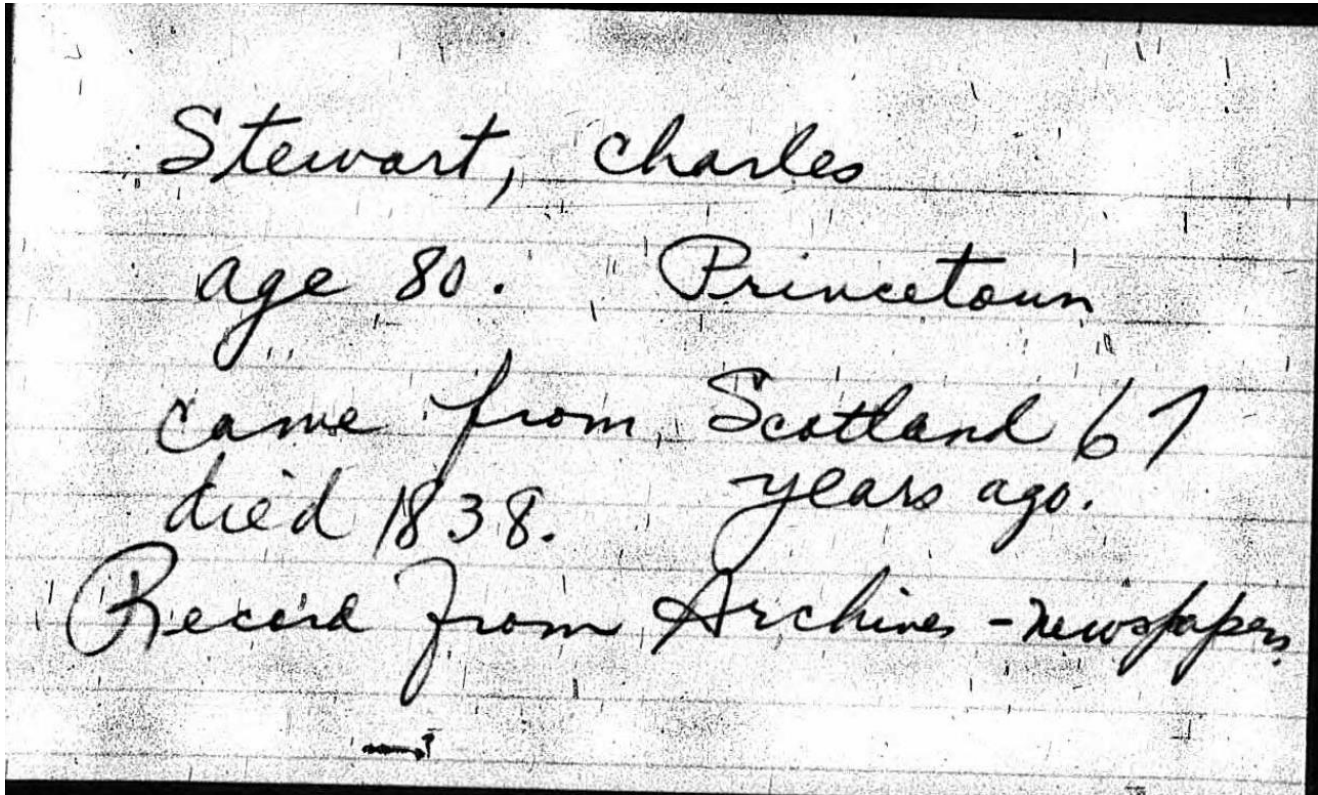 Stewart, Charles
age 80. Princetown
came from Scotland 67
years ago.
died 1838.
Record from Archives - newspapers